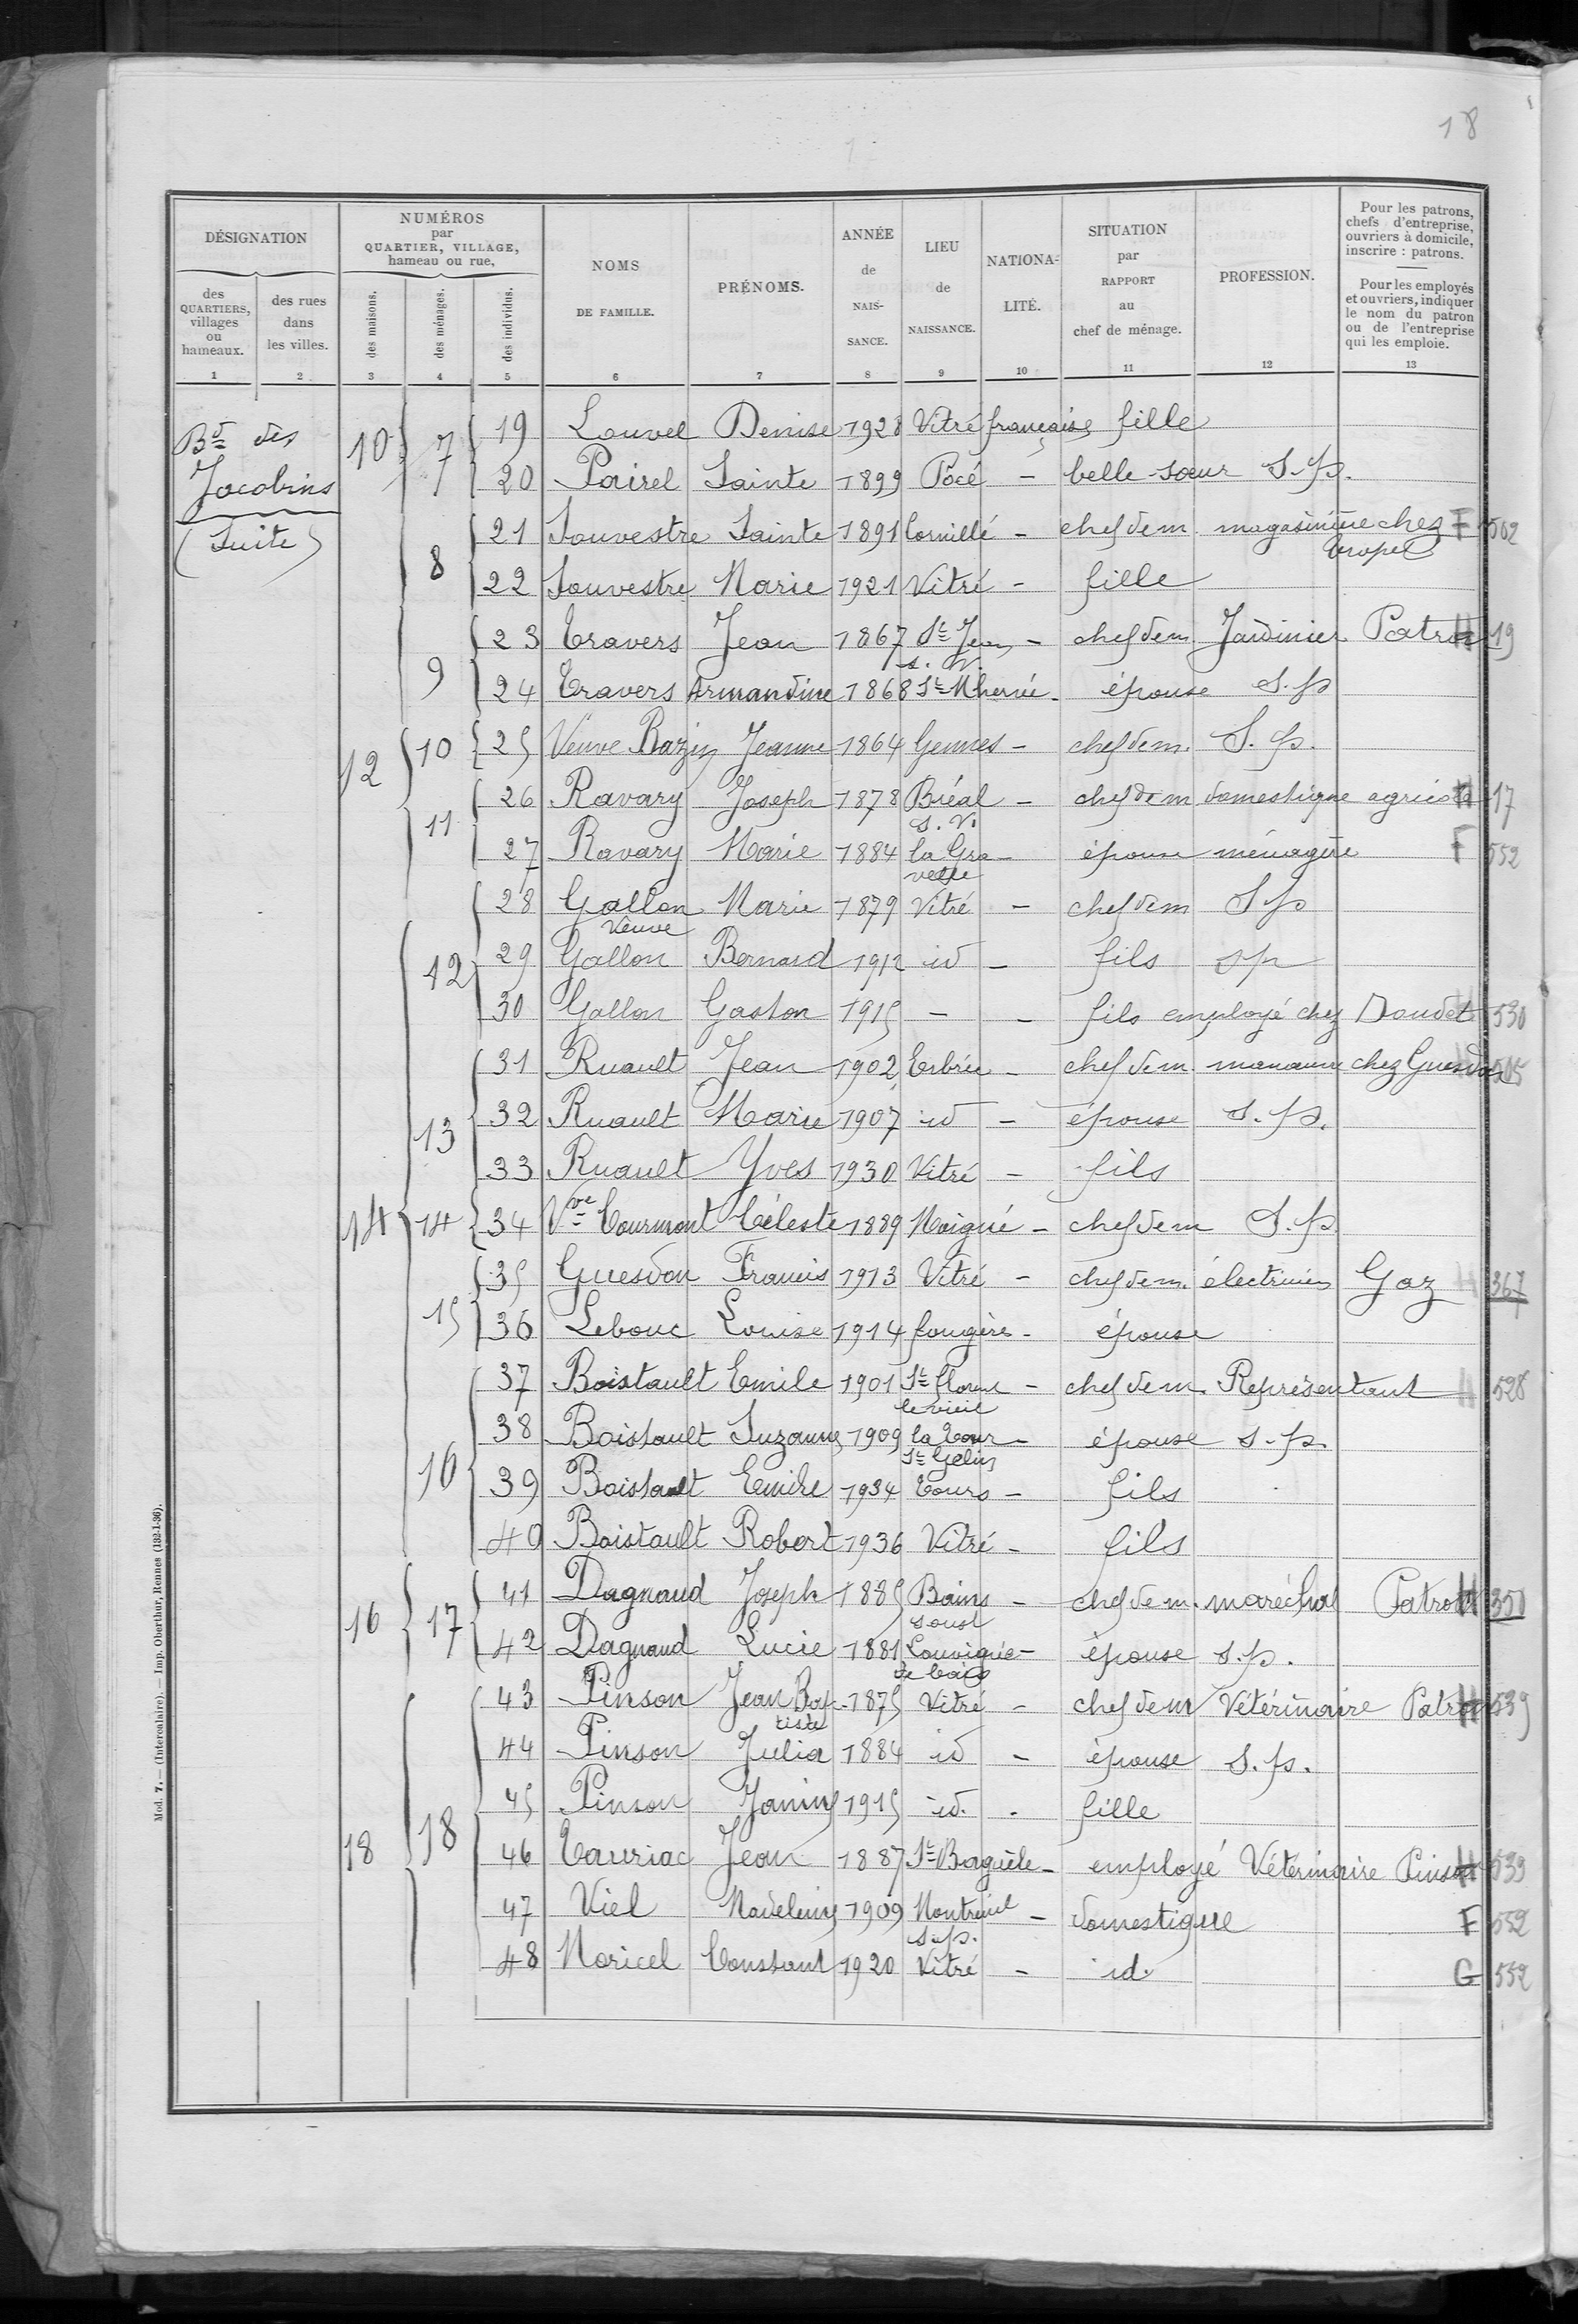 18
DÉSIGNATION
des QUARTIERS, villages ou hameaux.
des rues dans les villes.
NUMÉROS par QUARTIER, VILLAGE, hameau ou rue,
des maisons.
des ménages.
des individus.
NOMS DE FAMILLE.
PRÉNOMS.
ANNÉE de NAIS-SANCE.
LIEU de NAISSANCE.
NATIONA-LITÉ.
SITUATION par RAPPORT au chef de ménage.
PROFESSION.
Pour les patrons, chefs d'entreprise, ouvriers à domicile, inscrire : patrons.
Pour les employés et ouvriers, indiquer le nom du patron ou de l'entreprise qui les emploie.
1 2 3 4 5 6 7 8 9 10 11 12 13
Bd des Jacobins (Suite)
10 7 19 Louvel Denise 1928 Vitré française fille
20 Pairel Sainte 1899 Pocé - belle-sœur S.p.
8 21 Souvestre Sainte 1891 Cornillé - chef de m magasinière chez Tropel F 502
22 Souvestre Marie 1921 Vitré - fille
9 23 Travers Jean 1867 St Jean s. V. - chef de m Jardinier Patron 19
24 Travers Armandine 1868 St M'hervé - épouse S.p
12 10 25 Veuve Bazin Jeanne 1864 Gennes - chef de m. S.p.
11 26 Ravary Joseph 1878 Bréal s. V. - chef de m domestique agricole H 17
27 Ravary Marie 1884 la Gravelle - épouse ménagère F 552
12 28 Gallon Veuve Marie 1879 Vitré - chef de m S p
29 Gallon Bernard 1912 id - fils s p
30 Gallon Gaston 1915 - - fils employé chez Doudet 530
13 31 Ruault Jean 1902 Erbrée - chef de m. manœuvre chez Guesdon 505
32 Ruault Marie 1907 id - épouse s.p.
33 Ruault Yves 1930 Vitré - fils
14 14 34 Vve Tourmont Céleste 1889 Moigné - chef de m S.p
15 35 Guesdon Francis 1913 Vitré - chef de m. électricien Gaz H 367
36 Lebouc Louise 1914 fougères - épouse
16 37 Boistault Emile 1901 St florent le vieil - chef de m. Représentant H 528
38 Boistault Suzanne 1909 la Tour St Gelin - épouse s.p.
39 Boistault Emile 1934 Tours - fils
40 Boistault Robert 1936 Vitré - fils
16 17 41 Dagnaud Joseph 1885 Bains - chef de m. maréchal Patron H 350
42 Dagnaud Lucie 1881 Louvigné de bais - épouse s.p.
18 18 43 Pinson Jean Baptiste 1875 Vitré - chef de m Vétérinaire Patron H 539
44 Pinson Julia 1884 id - épouse s.p.
45 Pinson Janine 1915 id. - fille
46 Tauriac Jean 1887 St Baquèle - employé Vétérinaire Pinson H 539
47 Viel Madeleine 1909 Montreuil s.p. - domestique F 552
48 Moricel Constant 1920 Vitré - id. G 552
Mod. 7. — (Intercalaire). — Imp. Oberthur, Rennes (132-1-36).